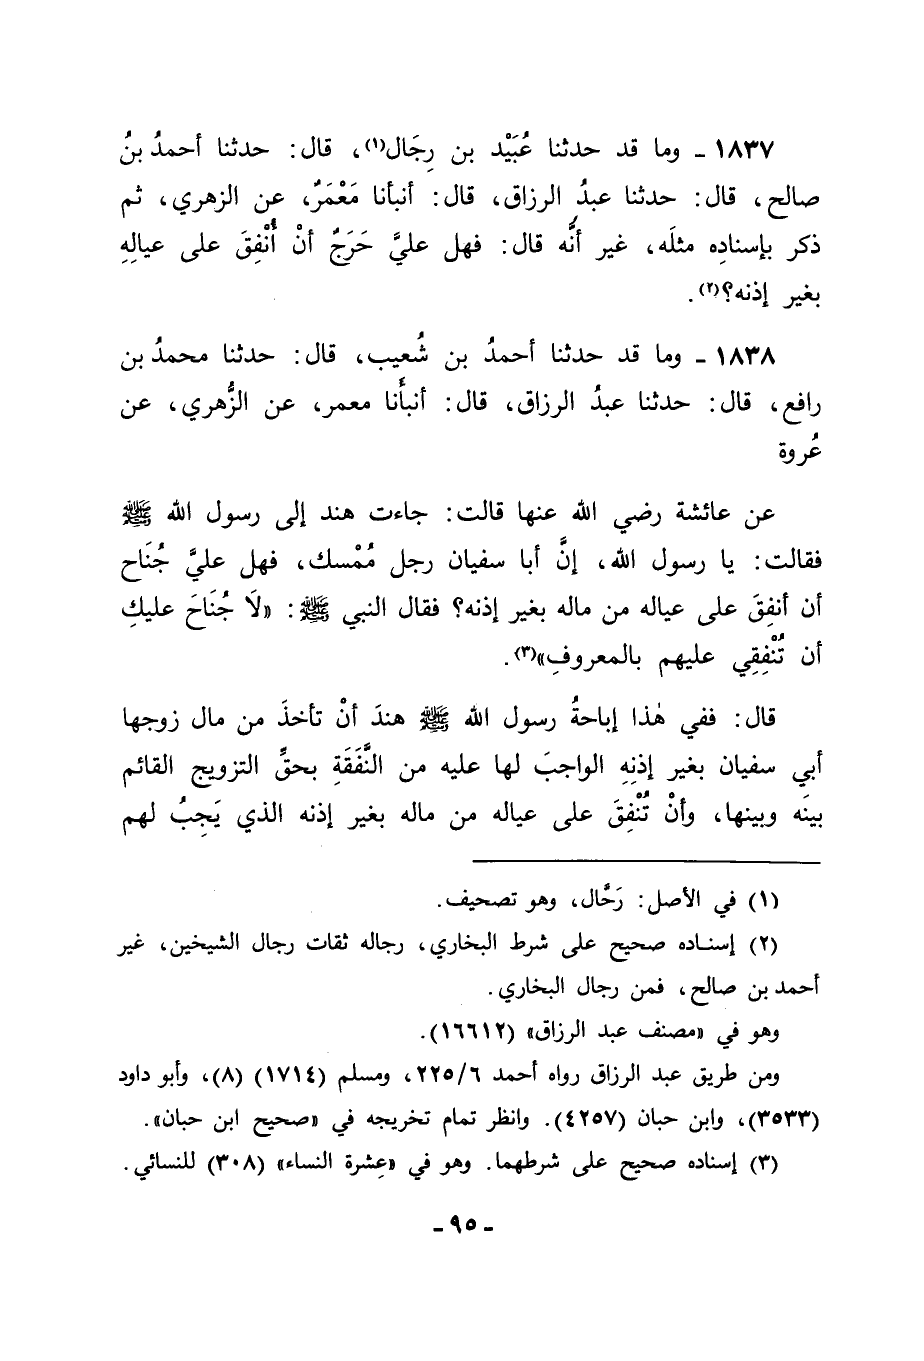 ١٨٣٧ - وما قد حدثنا عُبَيْد بن رِجَال(١)، قال: حدثنا أحمدُ بنُ
صالح، قال: حدثنا عبدُ الرزاق، قال: أنبأنا مَعْمَرٌ، عن الزهري، ثم
ذكر بإسنادِه مثلَه، غير أنَّه قال: فهل عليَّ حَرَجٌ أنْ أُنْفِقَ على عيالِهِ
بغير إذنه؟(٢).
١٨٣٨ - وما قد حدثنا أحمدُ بن شُعيب، قال: حدثنا محمدُ بن
رافع، قال: حدثنا عبدُ الرزاق، قال: أنبأَنا معمر، عن الزُّهري، عن
عُروة
عن عائشة رضي الله عنها قالت: جاءت هند إلى رسول الله ﷺ
فقالت: يا رسول الله، إنَّ أبا سفيان رجل مُمْسك، فهل عليَّ جُنَاح
أن أنفِقَ على عياله من ماله بغير إذنه؟ فقال النبي ﷺ: «لَا جُنَاحَ عليكِ
أن تُنْفِقِي عليهم بالمعروفِ»(٣).
قال: ففي هٰذا إباحةُ رسول الله ﷺ هندَ أنْ تأخذَ من مال زوجها
أبي سفيان بغير إذنِهِ الواجبَ لها عليه من النَّفَقَةِ بحقِّ التزويج القائم
بينَه وبينها، وأنْ تُنْفِقَ على عياله من ماله بغير إذنه الذي يَجِبُ لهم
(١) في الأصل: رَحَّال، وهو تصحيف.
(٢) إسناده صحيح على شرط البخاري، رجاله ثقات رجال الشيخين، غير
أحمد بن صالح، فمن رجال البخاري.
وهو في «مصنف عبد الرزاق» (١٦٦١٢).
ومن طريق عبد الرزاق رواه أحمد ٢٢٥/٦، ومسلم (١٧١٤) (٨)، وأبو داود
(٣٥٣٣)، وابن حبان (٤٢٥٧). وانظر تمام تخريجه في «صحيح ابن حبان».
(٣) إسناده صحيح على شرطهما. وهو في «عِشرة النساء» (٣٠٨) للنسائي.
- ٩٥ -